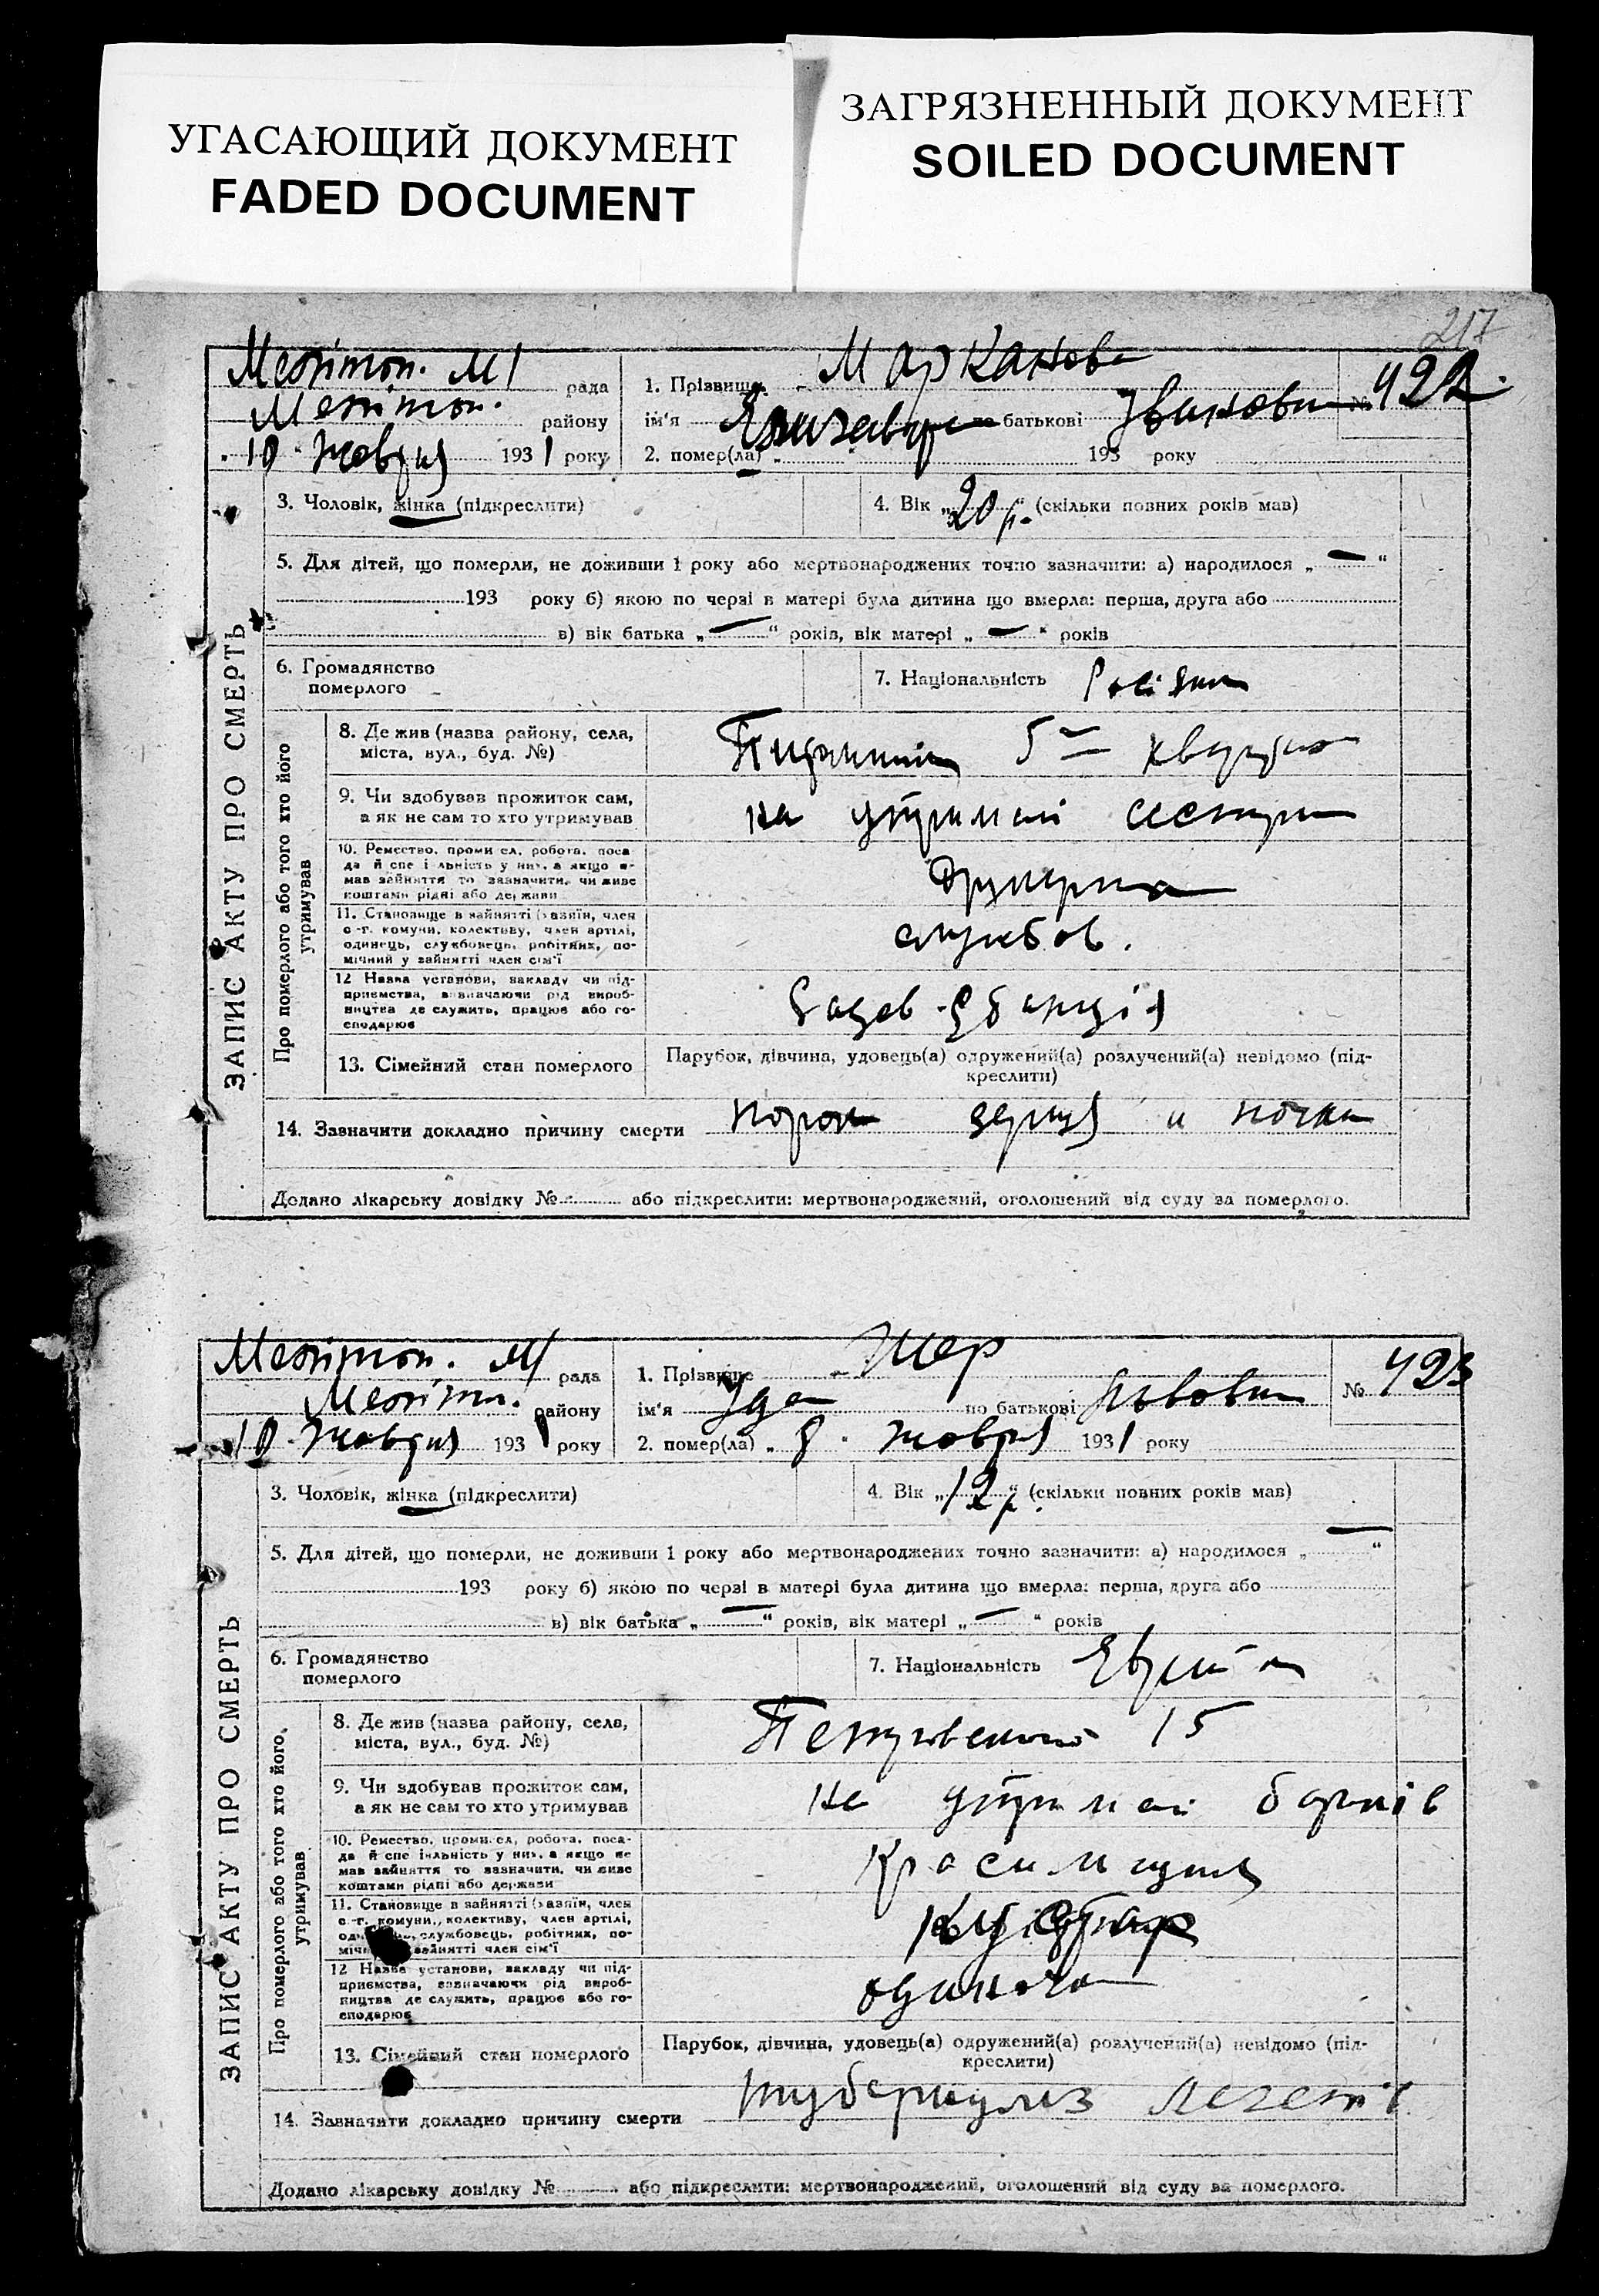 УГАСАЮЩИЙ ДОКУМЕНТ
FADED DOCUMENT
ЗАГРЯЗНЕННЫЙ ДОКУМЕНТ
SOILED DOCUMENT
217
ЗАПИС АКТУ ПРО СМЕРТЬ
Мелітоп. М/ рада
Мелітоп. району
10 жовтня 1931 року
1. Прізвище Марканова
ім'я Єлизавета по батькові Іванов № 422.
2. помер(ла) „ 193 року
3. Чоловік, жінка (підкреслити)
4. Вік „20 р.“ (скільки повних років мав)
5. Для дітей, що померли, не доживши 1 року або мертвонароджених точно зазначити: а) народилося „—“
193 року б) якою по черзі в матері була дитина що вмерла: перша, друга або
в) вік батька „—“ років, вік матері „—“ років
6. Громадянство померлого
7. Національність
Про померлого або того хто його утримував
8. Де жив (назва району, села, міста, вул., буд. №) 5
9. Чи здобував прожиток сам, а як не сам то хто утримував на утриман сестри
10. Ремество, промисел, робота, посада й спеціяльність у них, а якщо не мав зайняття то зазначити, чи живе коштами рідні або держави
11. Становище в зайнятті (хазяїн, член с.-г. комуни, колективу, член артілі, одинець, службовець, робітник, помічний у зайнятті член сім'ї службов.
12 Назва установи, закладу чи підприємства, зазначаючи рід виробництва де служить, працює або господарює
13. Сімейний стан померлого Парубок, дівчина, удовець(а) одружений(а) розлучений(а) невідомо (підкреслити)
14. Зазначити докладно причину смерти порок серця и почки
Додано лікарську довідку № або підкреслити: мертвонароджений, оголошений від суду за померлого.
ЗАПИС АКТУ ПРО СМЕРТЬ
Мелітоп. М/ рада
Меліт. району
10 жовтня 1931 року
1. Прізвище Шер
ім'я Іда по батькові Львовн № 423
2. помер(ла) „ 8 жовтня 1931 року
3. Чоловік, жінка (підкреслити)
4. Вік „12 р.“ (скільки повних років мав)
5. Для дітей, що померли, не доживши 1 року або мертвонароджених точно зазначити: а) народилося „—“
193 року б) якою по черзі в матері була дитина що вмерла: перша, друга або
в) вік батька „—“ років, вік матері „—“ років
6. Громадянство померлого
7. Національність Єврейка
Про померлого або того хто його утримував
8. Де жив (назва району, села, міста, вул., буд. №) 15
9. Чи здобував прожиток сам, а як не сам то хто утримував на утриман батьків
10. Ремество, промисел, робота, посада й спеціяльність у них, а якщо не мав зайняття то зазначити, чи живе коштами рідні або держави
11. Становище в зайнятті (хазяїн, член с.-г. комуни, колективу, член артілі, одинець, службовець, робітник, помічний у зайнятті член сім'ї кустар
12 Назва установи, закладу чи підприємства, зазначаючи рід виробництва де служить, працює або господарює одиночка
13. Сімейний стан померлого Парубок, дівчина, удовець(а) одружений(а) розлучений(а) невідомо (підкреслити)
14. Зазначити докладно причину смерти туберкулиз легенів
Додано лікарську довідку № або підкреслити: мертвонароджений, оголошений від суду за померлого.